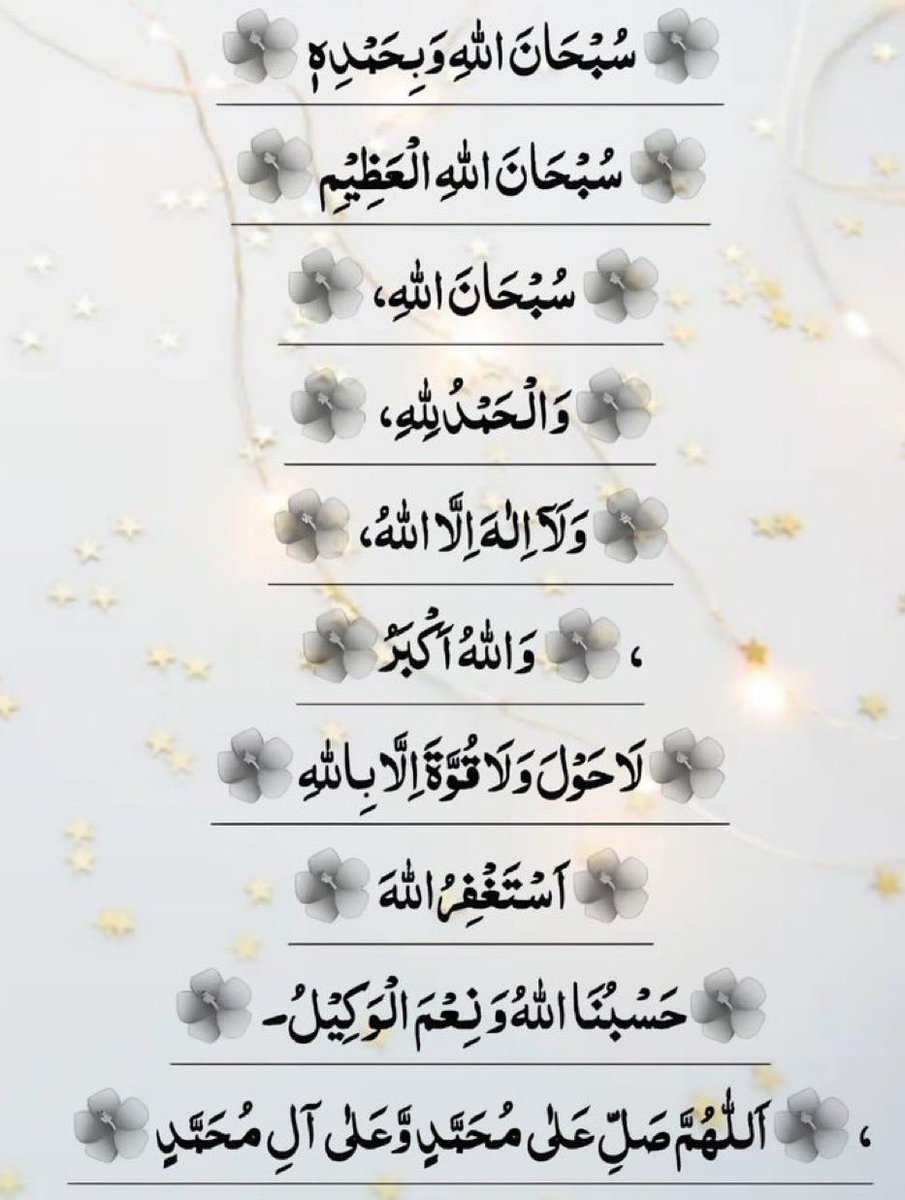 سُبْحَانَ اللّٰهِ وَبِحَمْدِهٖ
سُبْحَانَ اللّٰهِ الْعَظِيْمِ
سُبْحَانَ اللّٰهِ،
وَالْحَمْدُ لِلّٰهِ،
وَلَآ اِلٰهَ اِلَّا اللّٰهُ،
، وَاللّٰهُ اَكْبَرُ
لَا حَوْلَ وَلَا قُوَّةَ اِلَّا بِاللّٰهِ
اَسْتَغْفِرُ اللّٰهَ
حَسْبُنَا اللّٰهُ وَنِعْمَ الْوَكِيْلُ۔
، اَللّٰهُمَّ صَلِّ عَلٰى مُحَمَّدٍ وَّعَلٰى آلِ مُحَمَّدٍ